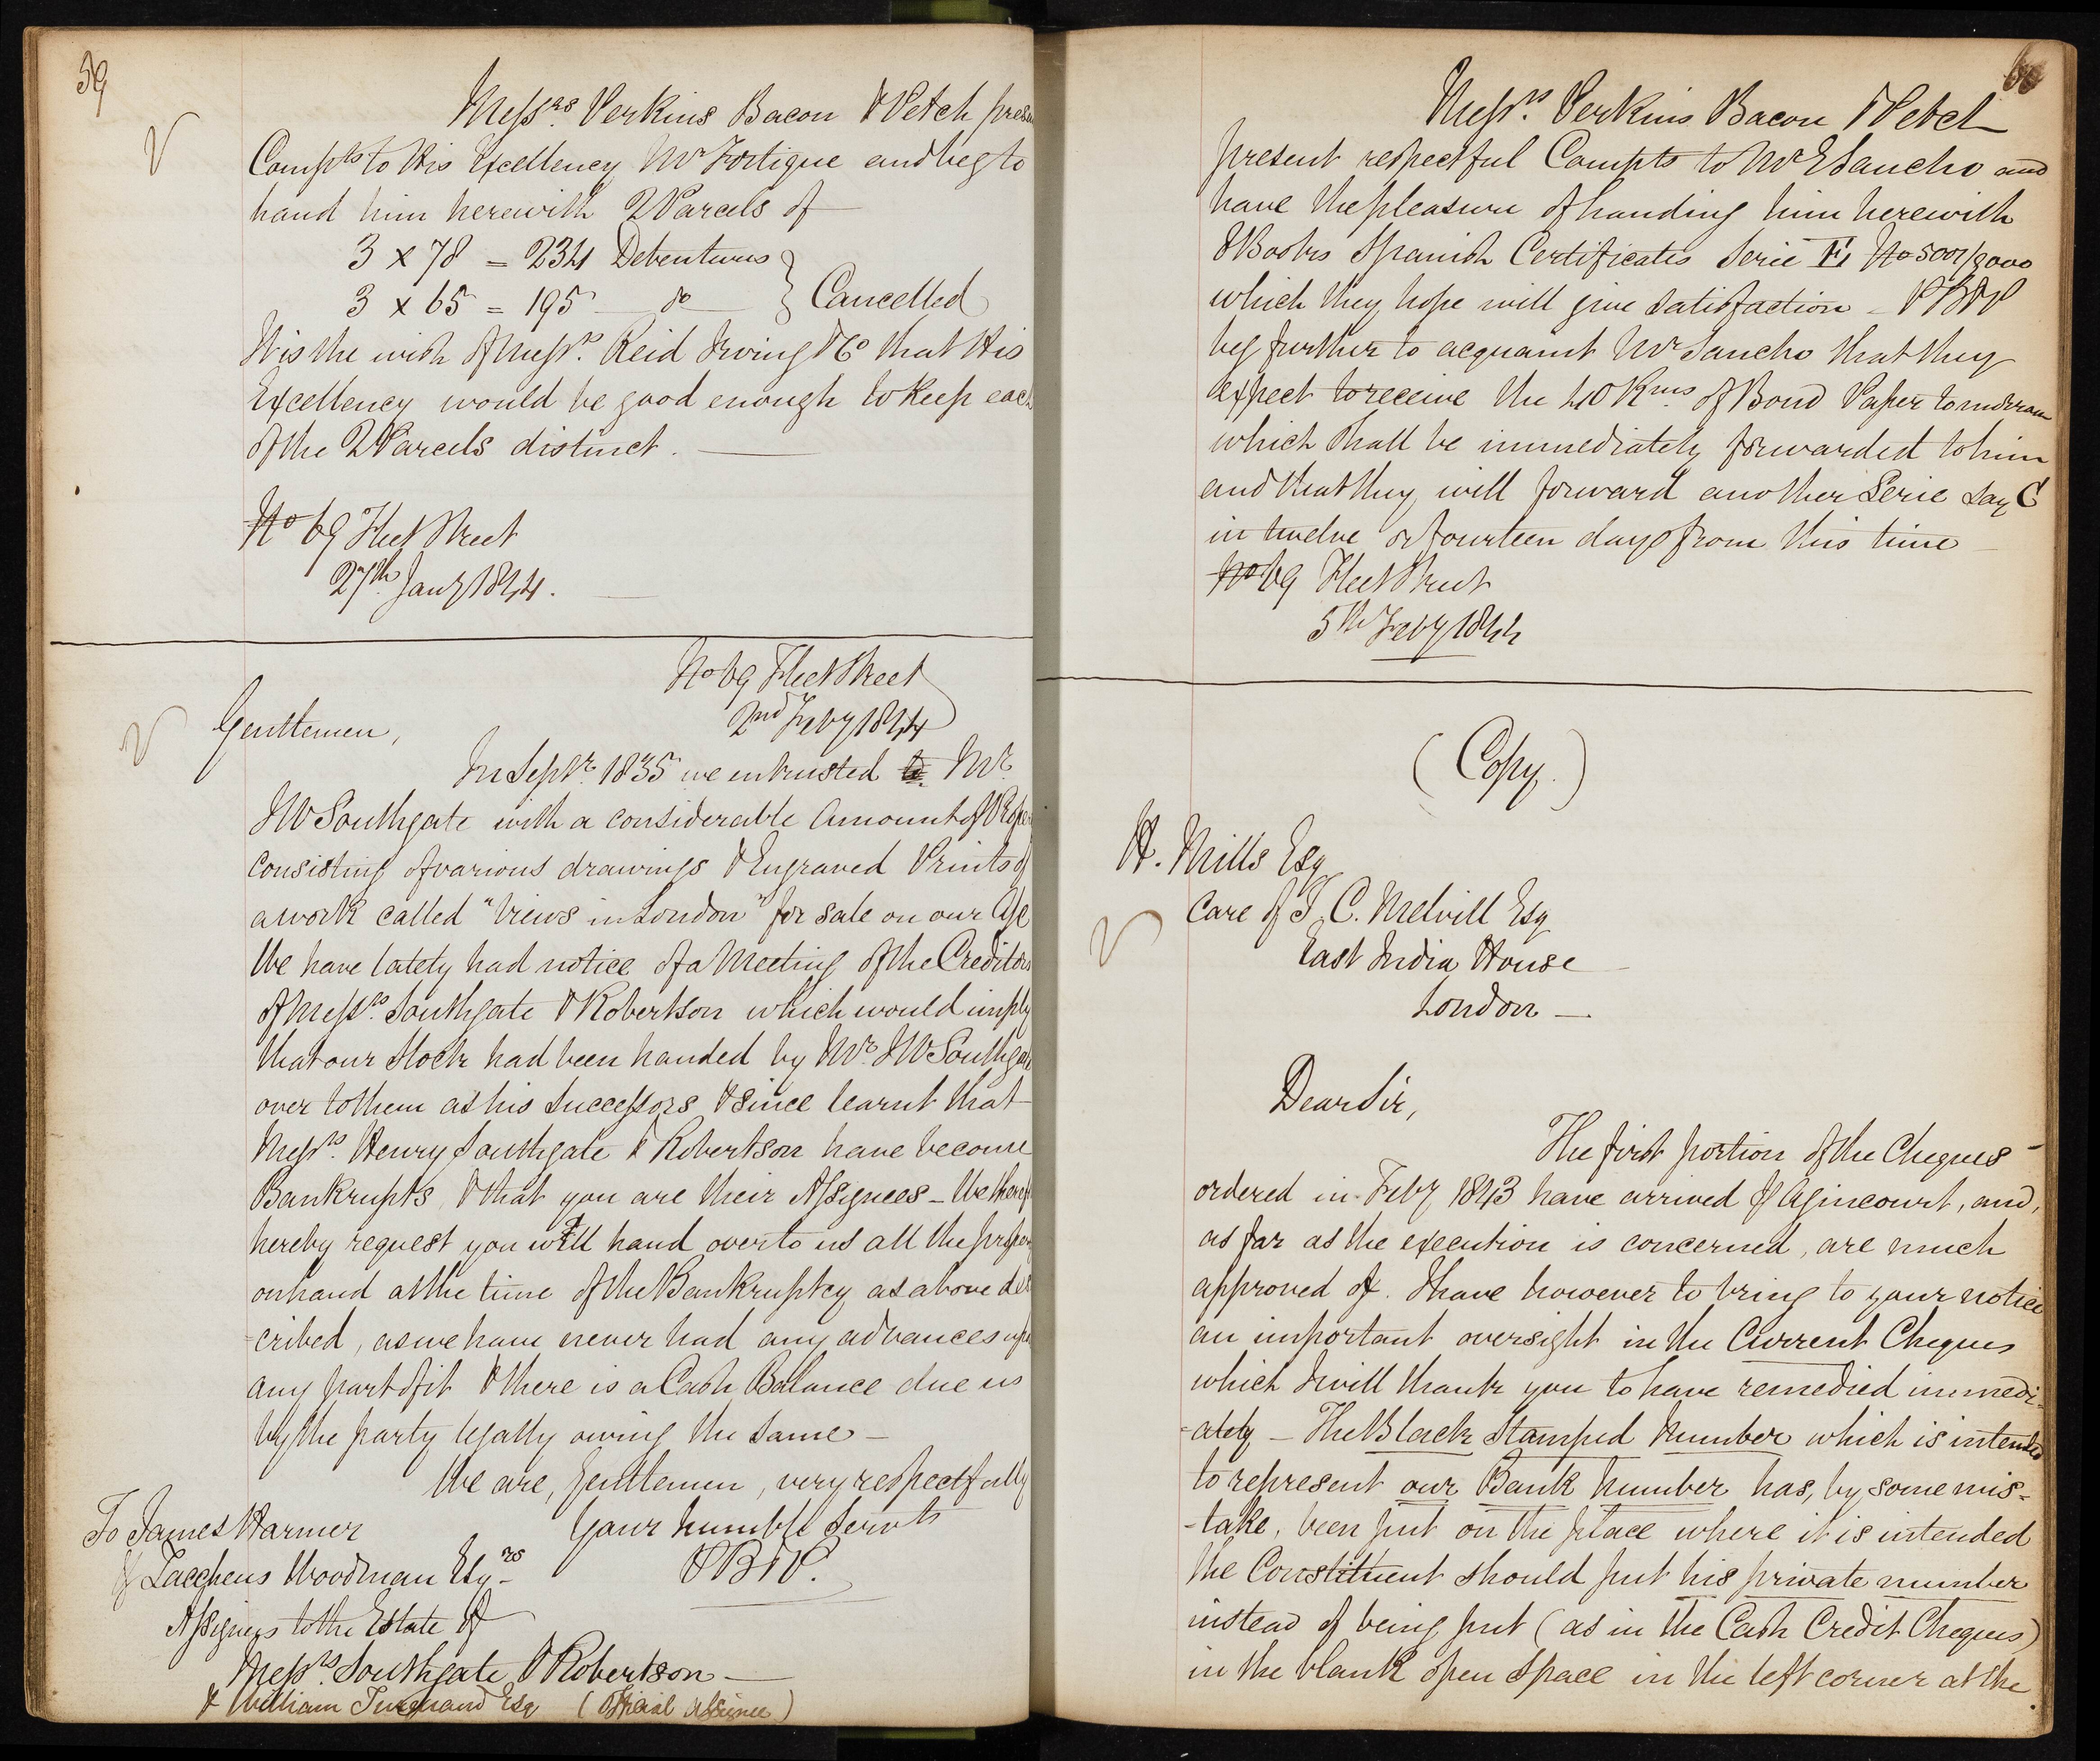 59
Messrs. Perkins Bacon & Petch
Compts to His Excellency Mr Fortique and beg to
hand him herewith 2 Parcels of
3 x 78 = 234 Debentures
3 x 65 = 195 — do — } Cancelled
It is the wish of Messrs. Reid Irving & Co that His
Excellency would be good enough to keep each
of the 2 Parcels distinct. —
No 69 Fleet Street
27th Jany 1844.
No 69 Fleet Street
2nd Feby 1844
Gentlemen,
In Septr. 1835 we entrusted to Mr.
J W Southgate with a considerable Amount of
consisting of various drawings & Engraved Prints of
a work called "Views in London" for sale on our
We have lately had notice of a Meeting of the Creditors
of Messrs. Southgate & Robertson which would imply
that our stock had been handed by Mr. J W Southgate
over to them as his Successors & since learnt that
Messrs. Henry Southgate & Robertson have become
Bankrupts, & that you are their Assignees – We
hereby request you will hand over to us all the
on hand at the time of the Bankruptcy as above des
=cribed, as we have never had any advances upon
any part of it & there is a Cash Balance due us
by the party legally owing the same –
We are, Gentlemen, very respectfully
Your humble Servts
PB&P.
To James Harmer
& Zaccheus Woodman Esqrs
Assignees to the Estate of
Messrs. Southgate & Robertson —
& William Turquand Esq (Official Assignee)
60
Messrs. Perkins Bacon & Petch
present respectful Compts to Mr E Sancho and
have the pleasure of handing him herewith
Books Spanish Certificates Serie E No 5001/
which they hope will give satisfaction – PB&P
beg further to acquaint Mr Sancho that they
expect to receive the 40 Rms of Bond Paper tomorrow
which shall be immediately forwarded to him
and that they will forward another Serie say C
in twelve or fourteen days from this time
No 69 Fleet Street
5th Feby 1844
(Copy.)
H. Mills Esq
Care of J. C. Melvill Esq
East India House
London —
Dear Sir,
The first portion of the Cheques
ordered in Feby 1843 have arrived p Agincourt, and,
as far as the execution is concerned, are much
approved of. I have however to bring to your notice
an important oversight in the Current Cheques
which I will thank you to have remedied immedi-
=ately – The Black Stamped Number which is intended
to represent our Bank number has, by some mis=
=take, been put on the place where it is intended
the Constituent should put his private number
instead of being put (as in the Cash Credit Cheques)
in the blank open space in the left corner at the